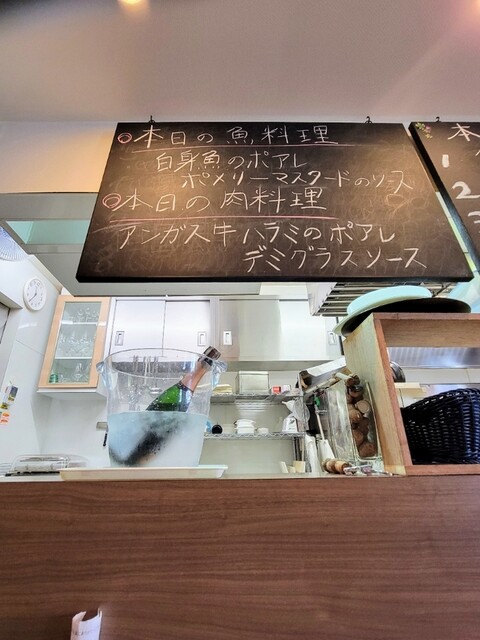 本日の魚料理
白身魚のポアレ
ポメリーマスタードのソース
本日の肉料理
アンガス牛ハラミのポアレ
デミグラスソース
本
1
2
3